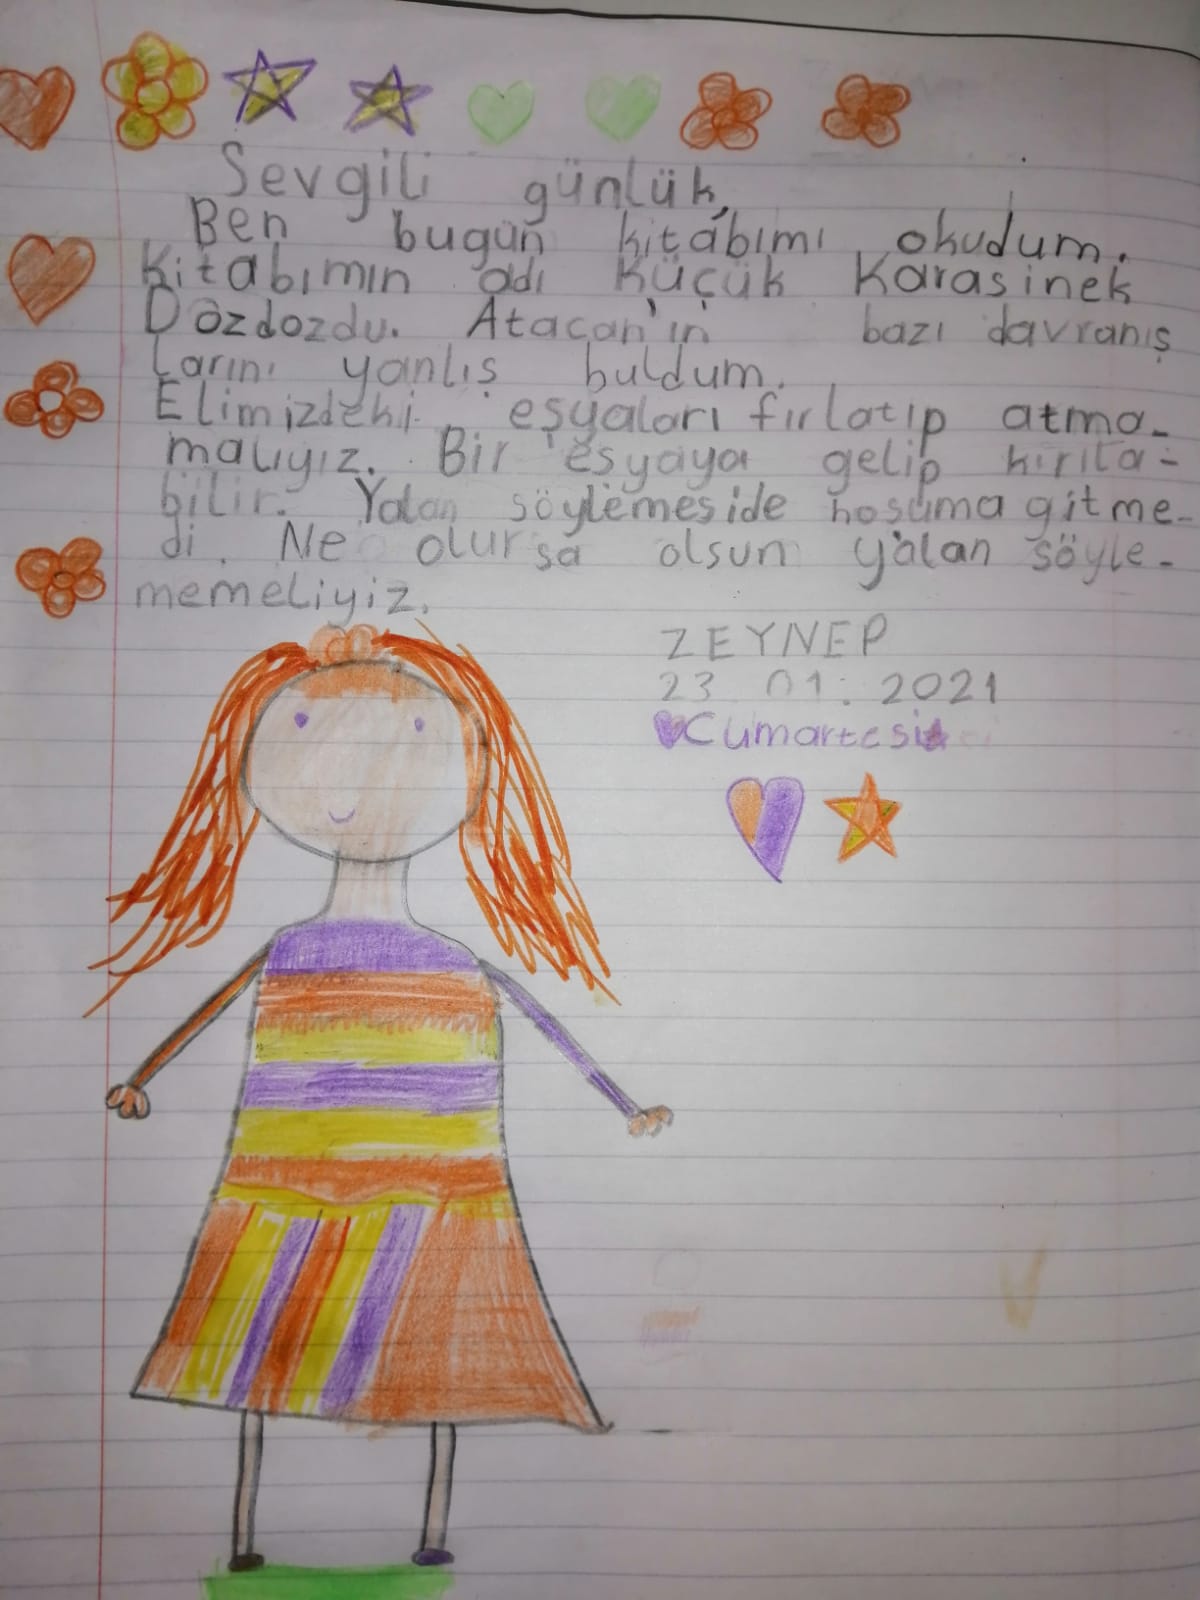 Sevgili günlük,
Ben bugün kitabımı okudum.
Kitabımın adı Küçük Karasinek
Dozdozdu. Atacan'ın bazı davranış
larını yanlış buldum.
Elimizdeki eşyaları fırlatıp atma-
malıyız. Bir eşyaya gelip kırıla-
bilir. Yalan söylemeside hoşuma gitme-
di. Ne olursa olsun yalan söyle-
memeliyiz.
ZEYNEP
23 01. 2021
Cumartesi